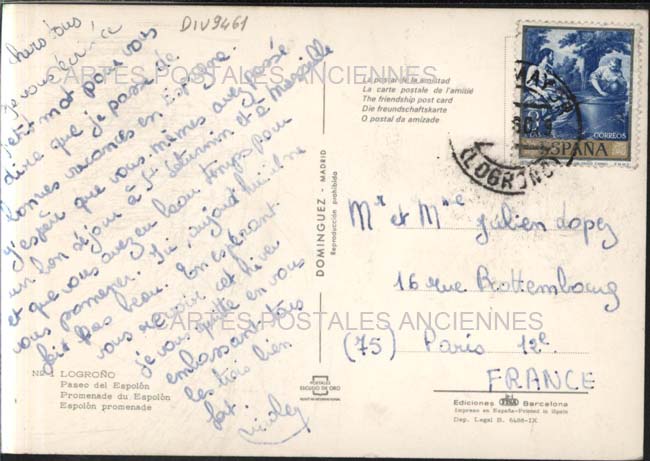 DIV9461
Chers tous
Je vous écris ce
petit mot pour vous
dire que je passe de
bonnes vacances en Espagne.
J'espère que vous mêmes avez passé
un bon séjour à St et à Marseille
et que vous avez eu beau temps pour
vous promener. Ici, aujourd'hui il ne
fait pas beau. En espérant
vous revoir cet hiver
je vous quitte en vous
embrassant tous
les trois bien
fort.
CARTES POSTALES ANCIENNES
CARTES POSTALES ANCIENNES
Nº 1 LOGROÑO
Paseo del Espolón
Promenade du Espolón
Espolón promenade
La postal de la amistad
La carte postale de l'amitié
The friendship post card
Die freundschaftskarte
O postal da amizade
DOMINGUEZ - MADRID
Reproducción prohibida
POSTALES
ESCUDO DE ORO
CORREOS
ESPAÑA
(LOGROÑO)
Mr et Mme Julien Lopez
16 rue Rottembourg
(75) Paris 12e
FRANCE
Ediciones FISA Barcelona
Impreso en España-Printed in Spain
Dep. Legal B. 6488-IX